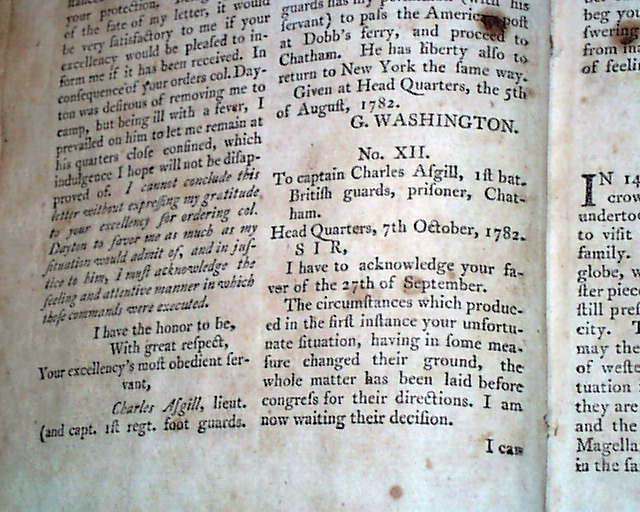 your protection.
of the fate of my letter, it would
be very satisfactory to me if your
excellency would be pleased to in-
form me if it has been received. In
consequence of your orders col. Day-
ton was desirous of removing me to
camp, but being ill with a fever, I
prevailed on him to let me remain at
his quarters close confined, which
indulgence I hope will not be disap-
proved of. I cannot conclude this
letter without expressing my gratitude
to your excellency for ordering col.
Dayton to favor me as much as my
situation would admit of, and in jus-
tice to him, I must acknowledge the
feeling and attentive manner in which
these commands were executed.
I have the honor to be,
With great respect,
Your excellency's most obedient ser-
vant,
Charles Asgill, lieut.
(and capt. 1st regt. foot guards.
guards has my (with his
servant) to pass the American post
at Dobb's ferry, and proceed to
Chatham. He has liberty also to
return to New York the same way.
Given at Head Quarters, the 5th
of August, 1782.
G. WASHINGTON.
No. XII.
To captain Charles Asgill, 1st bat.
British guards, prisoner, Chat-
ham.
Head Quarters, 7th October, 1782.
SIR,
I have to acknowledge your fa-
vor of the 27th of September.
The circumstances which produc-
ed in the first instance your unfortu-
nate situation, having in some mea-
sure changed their ground, the
whole matter has been laid before
congress for their directions. I am
now waiting their decision.
I can
beg yo
swering
from in
of feelin
IN 14
crow
undertoo
to visit
family.
globe, w
ster piece
still pres
city. T
may the
of weste
tuation
they are
and the
Magella
in the sa